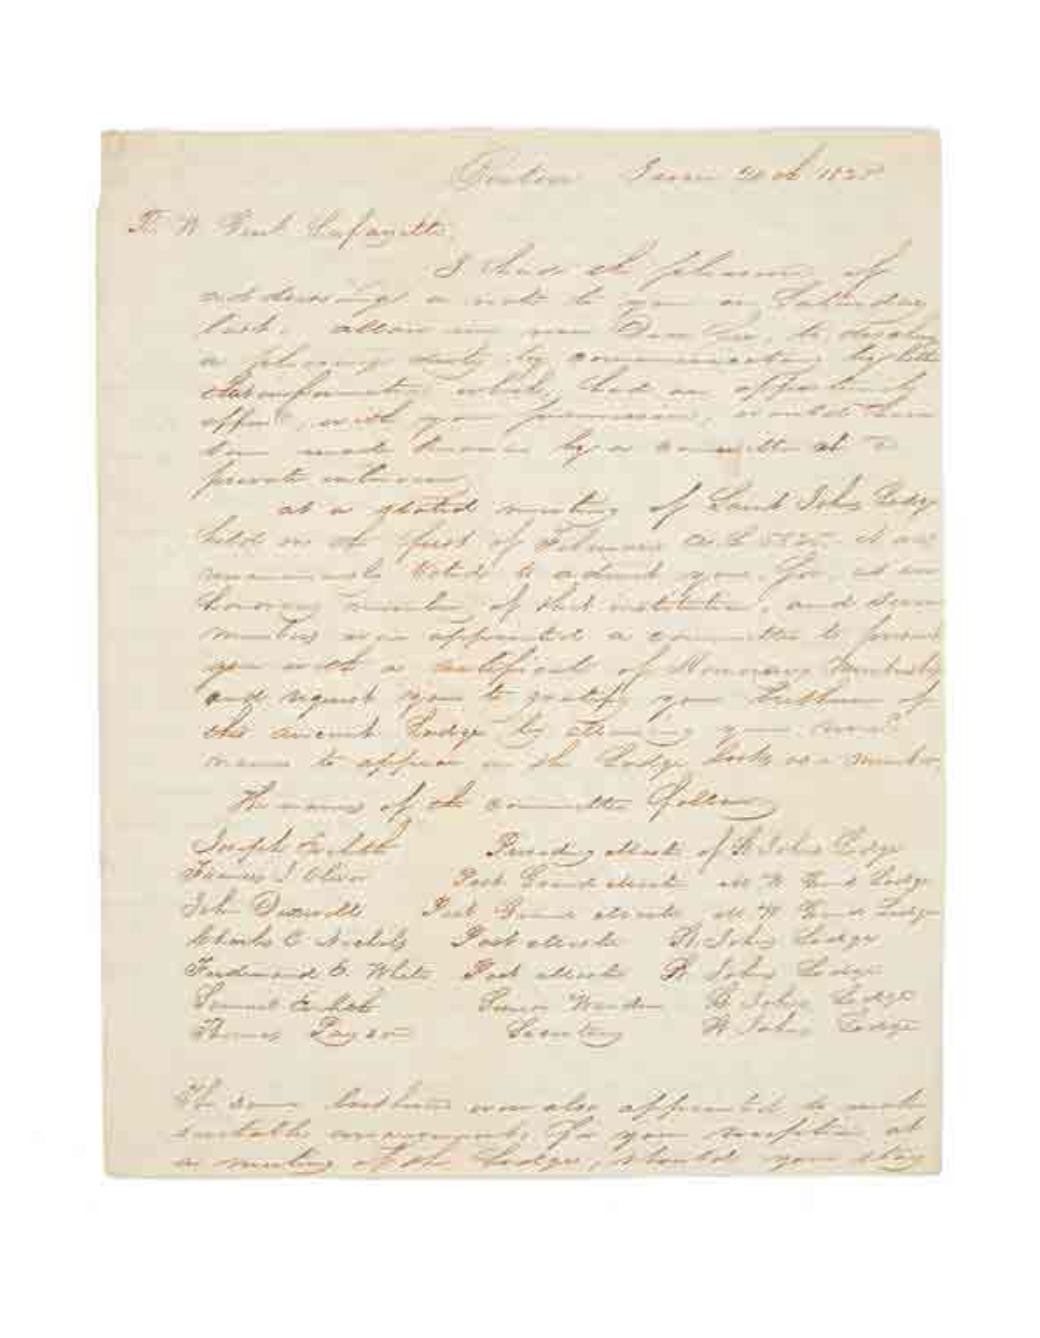 Boston June 20th 1825
Lafayette
I had the pleasure of
addressing a note to you on Saturday
last. allow me now Dear Sir, to
a pleasing duty by communicating by letter
which, had an opportunity
with your permission, would have
been made known by a committee at a
private interview
at a stated meeting of Saint Johns Lodge
held on the first of February it was
unanimously voted to admit you, Sir, as an
honorary member of that institution, and seven
members were appointed a committee to present
you with a certificate of Honorary Membership
and request you to gratify your Brethren of
this ancient Lodge by allowing your
name to appear in the Lodge Books as a member
The names of the committee follow
Joseph Presiding Master of St Johns Lodge
Francis J Oliver Past Grand Master M W Grand Lodge
John Dixwell Past Grand Master M W Grand Lodge
Charles C Nichols Past Master St Johns Lodge
Ferdinand E. White Past Master St Johns Lodge
Samuel Senior Warden St Johns Lodge
Thomas Payson Secretary St Johns Lodge
The same brethren were also appointed to make
suitable arrangements for your reception at
a meeting of the Lodge, should your stay